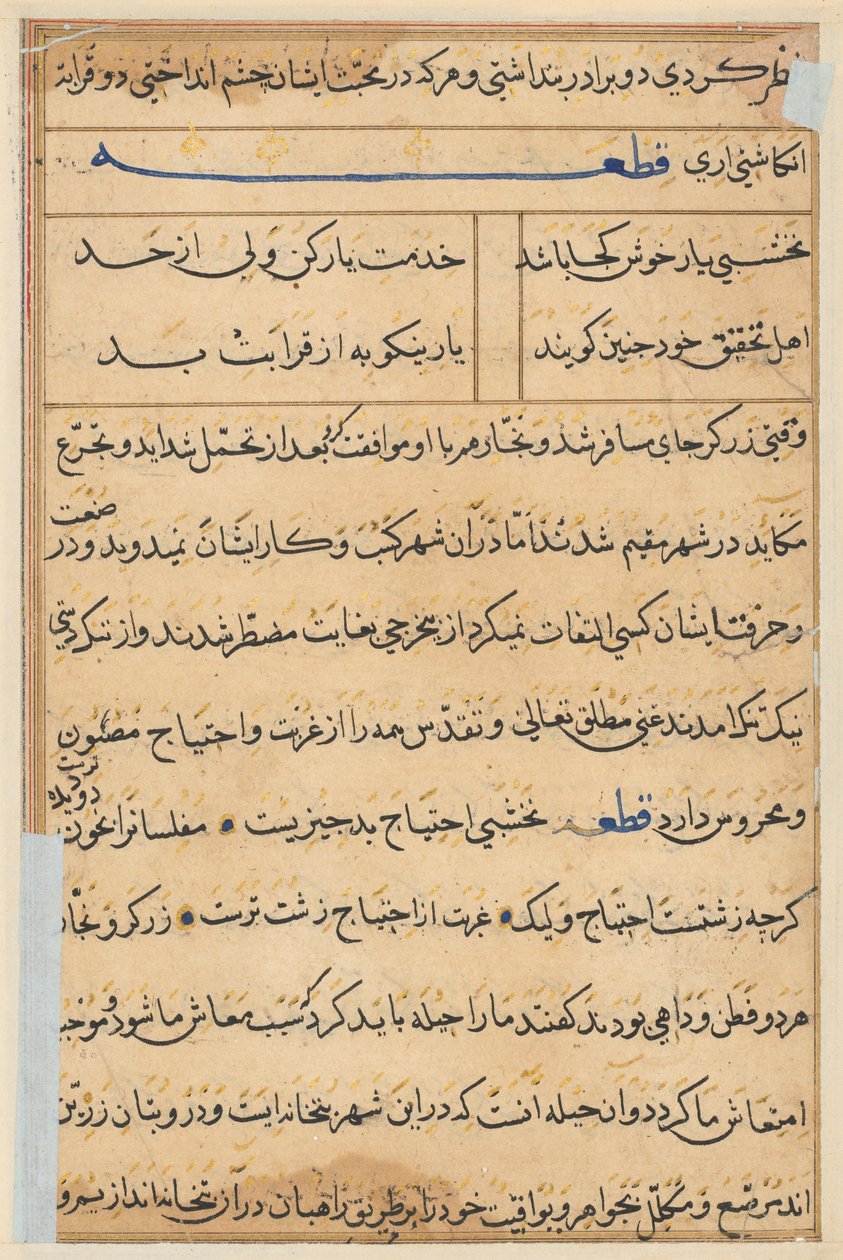 نظر کردي دو برادر پنداشتي و هرکه در محبت ایشان چشم انداختي دو قرابة
انکاشتي اري قطعه
نخشبي یار خوش کجا باشد خدمت یار کن ولي از حد
اهل تحقیق خود جنین کویند یار نیکو به از قرابت بد
وقتي زرکر جاي مسافر شد و نجّار هم با او موافقت کرد بعد از تحمّل شداید و تجرّع
مکاید در شهر مقیم شدند اَمّا در آن شهر کسب و کار ایشان نمیدوید و در صنعت
و حرفت ایشان کسي التفات نمیکرد از بیخرجي بغایت مضطّر شدند و از تنک دستي
نیک تنک امدند غني مطلق تعالي و تقدّس همه را از غربت و احتیاج مصئون
و محروس دارد قطعه نخشبي احتیاج بد جیزیست مفلسانرا بخون دویده ترست
کرچه زشتست احتیاج و لیک غربت از احتیاج زشت ترست زرکر و نجّار
هر دو فطن و داهي بودند کفتند ما را حیله باید کرد که سبب معاش ما شود و موجب
امتعاش ما کردد و ان حیله آنست که در این شهر بتخانه ایست و درو بتان زرّین
اند مرصّع و مکلّل بجواهر و یواقیت خود را بر طریق راهبان در آن بتخانه اندازیم و